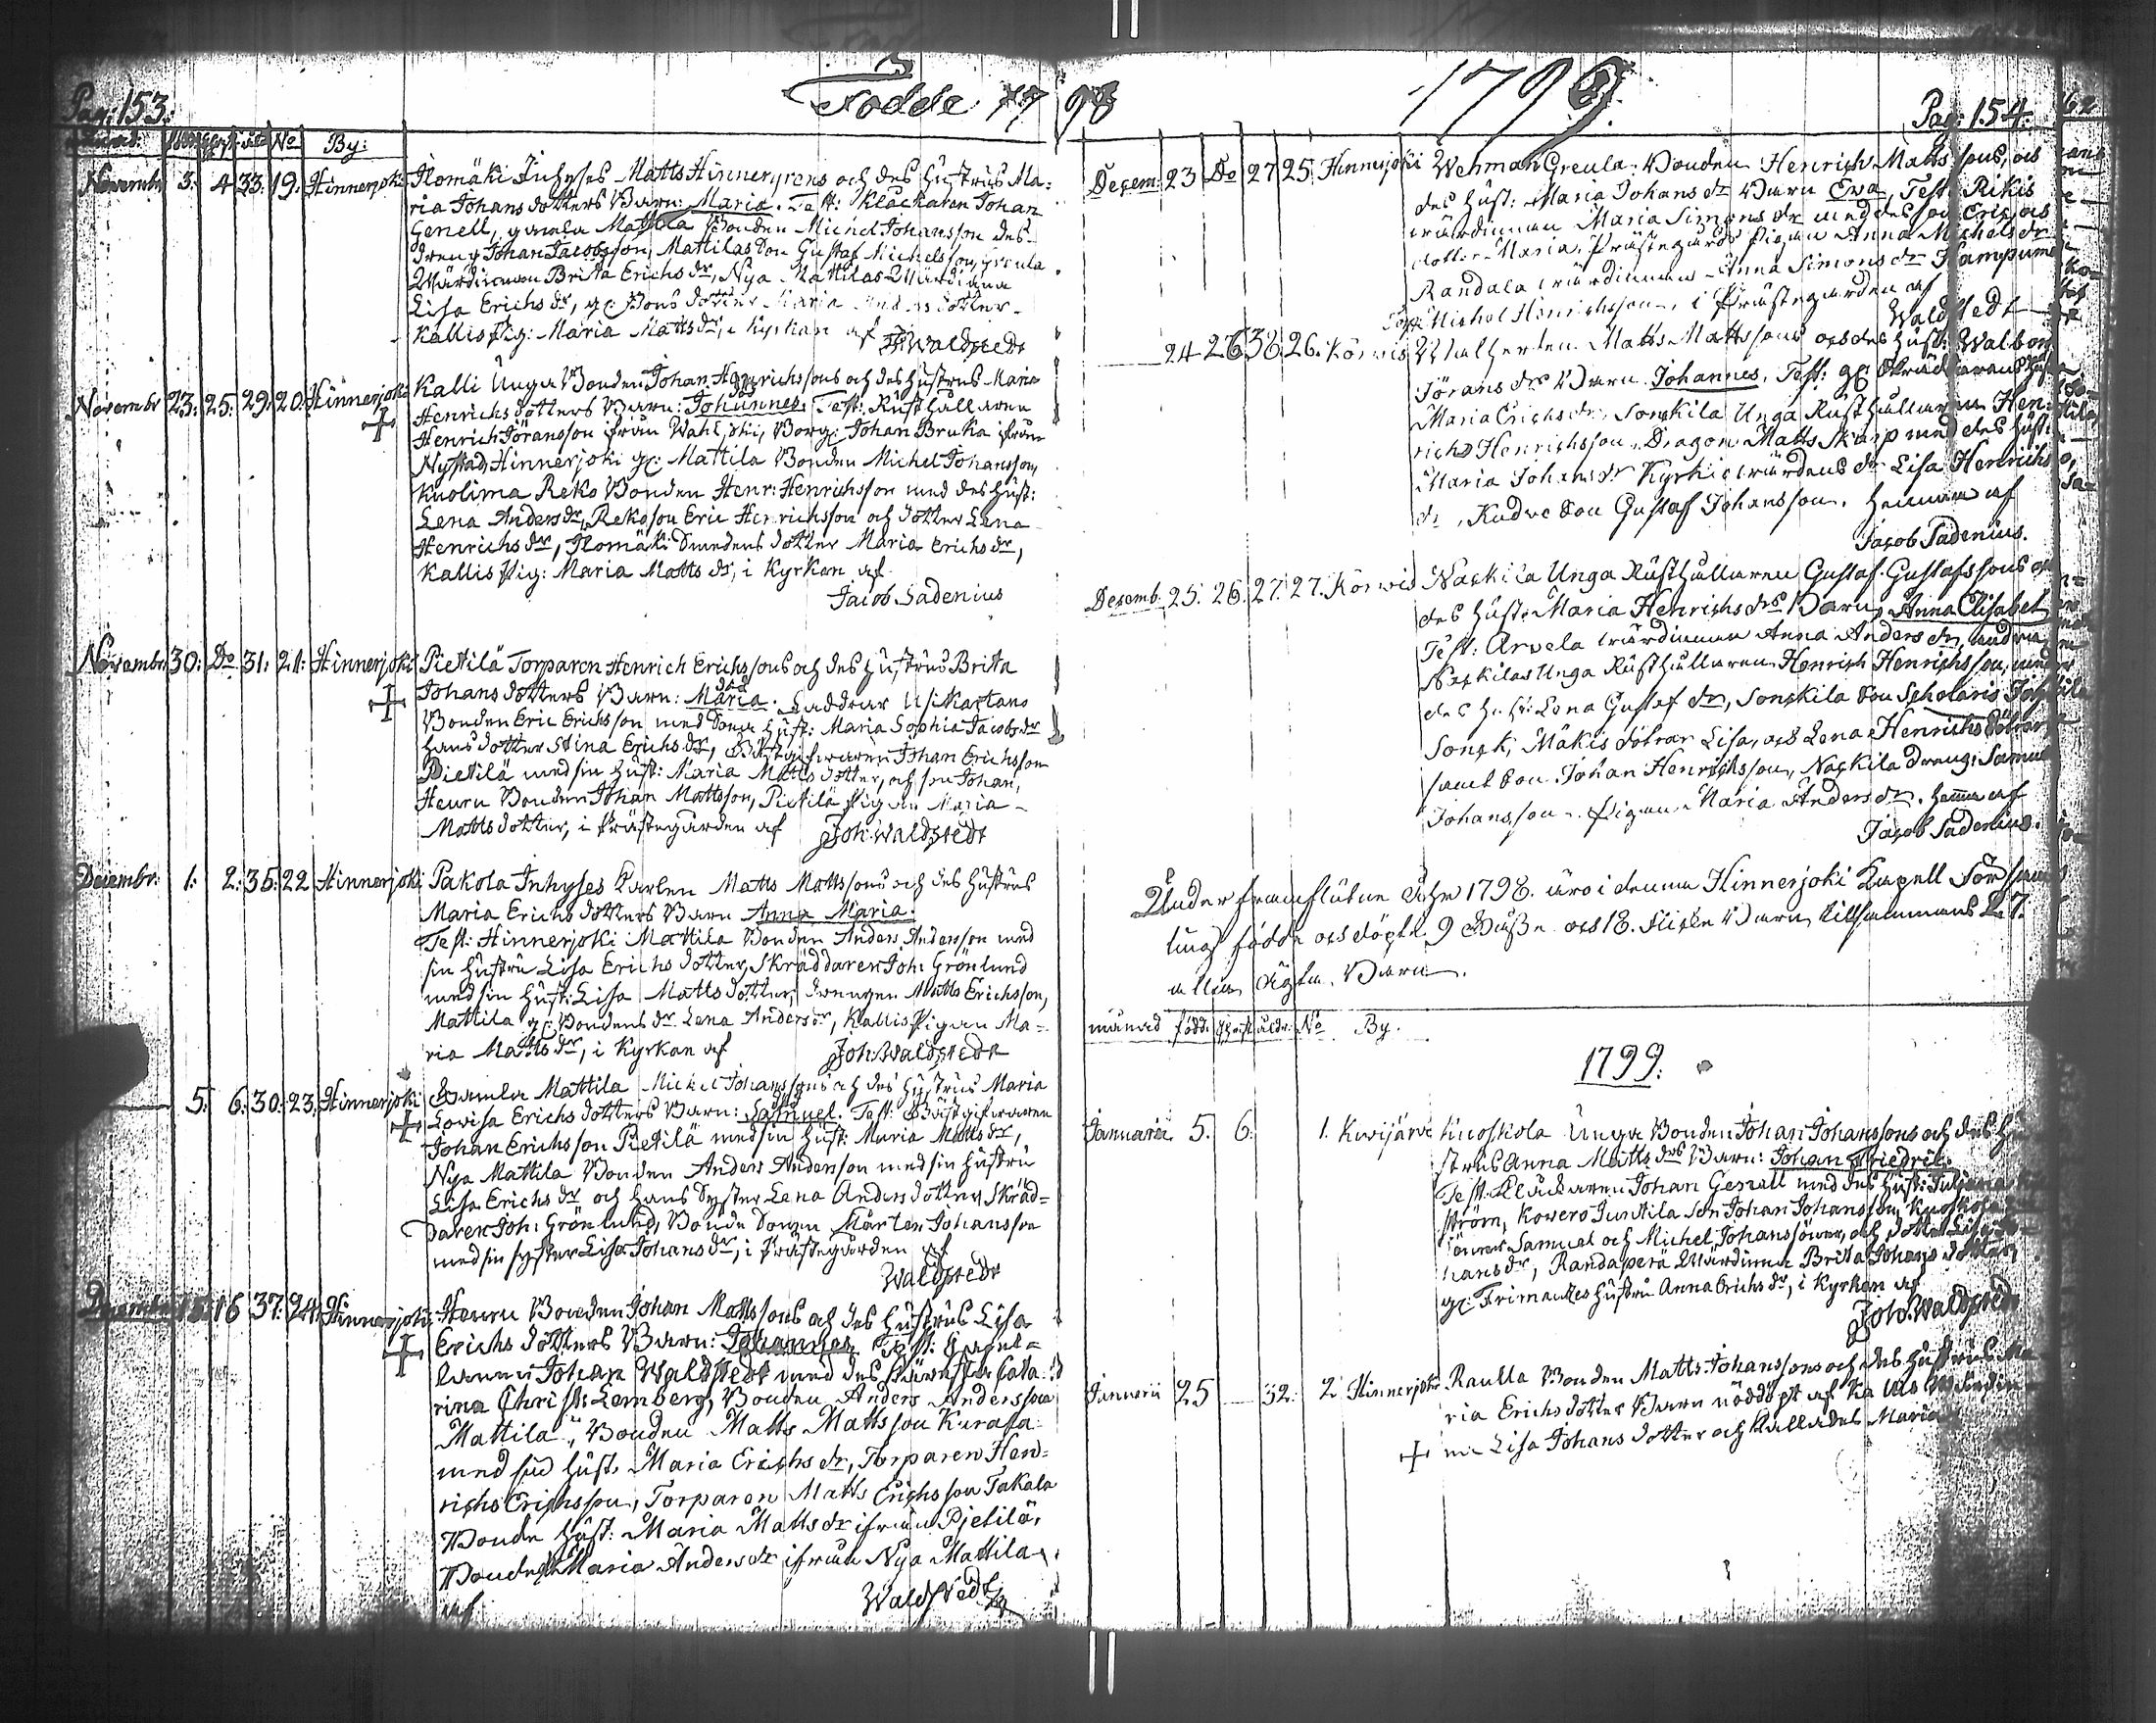 Pag: 153.
Födde 1798
Månad: By: No
Novembr 3. 4 33. 19. Hinnerjoki Ilomäki Inhyses Matts Hinnergrens och des Hustrus Ma-
ria Johans dotters Barn: Maria. Test: Klåckaren Johan
Genell, gamla Mattila Bonden Michel Johansson des
dreng Johan Jacobsson, Mattilas Son Gustaf Michelsson,
Wärdinnan Brita Erichs dr, Nya Mattilas Wärdinna
Lisa Erichs dr, gl: Bons dotter Maria Anders dotter
Kallis Pig: Maria Matts dr, i Kyrkan af
J: Waldstedt
Novembr 23. 25. 29. 20. Hinnerjoki Kalli Unga Bonden Johan Henrichssons och des Hustrus Maria
Henrichs dotters Barn: Johannes. Test: Rusthållaren
Henrich Jöransson ifrån Wahljoki, Borg: Johan Bruka ifrån
Nystad, Hinnerjoki gl: Mattila Bonden Michel Johansson,
Kuolima Reko Bonden Henr: Henrichsson med des Hust:
Lena Anders dr, Reko son Eric Henrichsson och dotter Lena
Henrichs dr, Ilomäki Smedens dotter Maria Erichs dr,
Kallis Pig: Maria Matts dr, i Kyrkan af
Jacob Sadenius
Novembr 30. Do 31. 21. Hinnerjoki Pietilä Torparen Henrich Erichssons och des Hustrus Brita
Johans dotters Barn: Maria. Faddrar Usikartano
Bonden Eric Erichsson med dena Hust: Maria Sophia Jacobs dr
Hans dotter Stina Erichs dr, Gästgifwaren Johan Erichsson
Pietilä med sin Hust: Maria Matts dotter, och son Johan,
Heuru Bonden Johan Mattsson, Pietilä Pigan Maria
Matts dotter, i Prästegården af Joh: Waldstedt
Decembr: 1. 2. 35. 22 Hinnerjoki Pakola Inhyses Karlen Matts Mattssons och des Hustrus
Maria Erichs dotters Barn Anna Maria.
Test: Hinnerjoki Mattila Bonden Anders Andersson med
sin Hustru Lisa Erichs dotter, Skräddaren Joh: Grönlund
med sin Hust: Lisa Matts dotter, drengen Matts Erichsson,
Mattila gl: Bondens dr Lena Anders dr, Kallis Pigan Ma-
ria Matts dr, i Kyrkan af Joh: Waldstedt
5. 6. 30. 23. Hinnerjoki Gamla Mattila Michel Johanssons och des Hustrus Maria
Lovisa Erichs dotters Barn: Samuel. Test: Gästgifwaren
Johan Erichsson Pietilä med sin Hust: Maria Matts dr,
Nya Mattila Bonden Anders Andersson med sin Hustru
Lisa Erichs dr och Hans Syster Lena Anders dotter, Skräd-
daren Joh: Grönlund, Bonde Sonen Mårten Johansson
med sin syster Lisa Johans dr, i Prästegården af
Waldstedt
16 37. 24. Hinnerjoki Heuru Bonden Johan Mattssons och des Hustrus Lisa
Erichs dotters Barn: Johannes Test: Capel-
lanen Johan Waldstedt med des Käresta Cata-
rina Christ: Lemberg, Bonden Anders Andersson
Mattila, Bonden Matts Mattsson Kurasa
med sin Hust. Maria Erichs dr, Torparen Hen-
richs Erichsson, Torparen Matts Erichsson Takala
Bonde Hust: Maria Matts dr ifrån Pietilä,
Maria Anders dr ifrån Nya Mattila,
af Waldstedt
1799.
Pag: 154.
Decem: 23 Do 27 25 Hinnerjoki Wehman Greula Bonden Henrich Mattssons, och
des Hust: Maria Johans dr Barn Ewa, Test: Rikis
wärdinnan Maria Simons dr med des son Eric och
dotter Maria, Prästegårds Pigan Anna Michels dr
Randala wärdinnan Anna Simons dr
Michel Henrichsson, i Prästegården af
Waldstedt
24 26 38 26. Körwis Matts Mattssons och des Hust: Walborg
Jörans drs Barn Johannes, Test: gl:
Maria Erichs dr, Sonckila Unga Rusthållaren Hen-
richs Henrichsson, Dragon Matts Skarp med des Hust:
Maria Johans dr Kyrkic wärdens dr Lisa Henrichs
dr, Son Gustaf Johansson. hemma af
Jacob Sadenius.
Decemb. 25. 26. 27. 27. Körwis Naskila Unga Rusthållaren Gustaf Gustafssons och
des Hust: Maria Henrichs drs Barn, Anna Elisabet
Test: Arwela wärdinnan Anna Anders dr,
Naskilas Unga Rusthållaren Henrich Henrichsson, med
des Hust: Lena Gustaf dr, Sonckila Son Scholaris
Sonck, Mäkis dötrar Lisa, och Lena Henrichs dötrar
samt Son Johan Henrichsson, Naskila dreng: Samuel
Johansson. Pigan Maria Anders dr. hemma af
Jacob Sadenius.
Under framflutne Åhr 1798. äro i denna Hinnerjoki Kapell Församl
lings födde och döpte 9 Gosse och 18. Flicke Barn, tillsammans 27.
alla ägta Barn.
månad född. Christ: åldr: No By.
1799.
Januarii 5. 6. 1. Kuoskola Unga Bonden Johan Johanssons och des Hu
strus Anna Matts drs Barn: Johan Friedric.
Test: Klåckaren Johan Genell med des Hust: Juliana
ström, Kowero Juntila son Johan Johansson, Kuoskola
Sönner Samuel och Michel Johanssöner, och dotter Lisa Jo
hans dr, Randaperä Wärdinna Brita Johans dotter,
gl: Hustru Anna Erichs dr, i Kyrkan af
Joh: Waldstedt
Januarii 25 32. 2. Hinnerjoki Raulla Bonden Matts Johanssons och des Hustrus Ma
ria Erichs dotter Barn nöddöpt af
Lisa Johans dotter och Kallades Maria